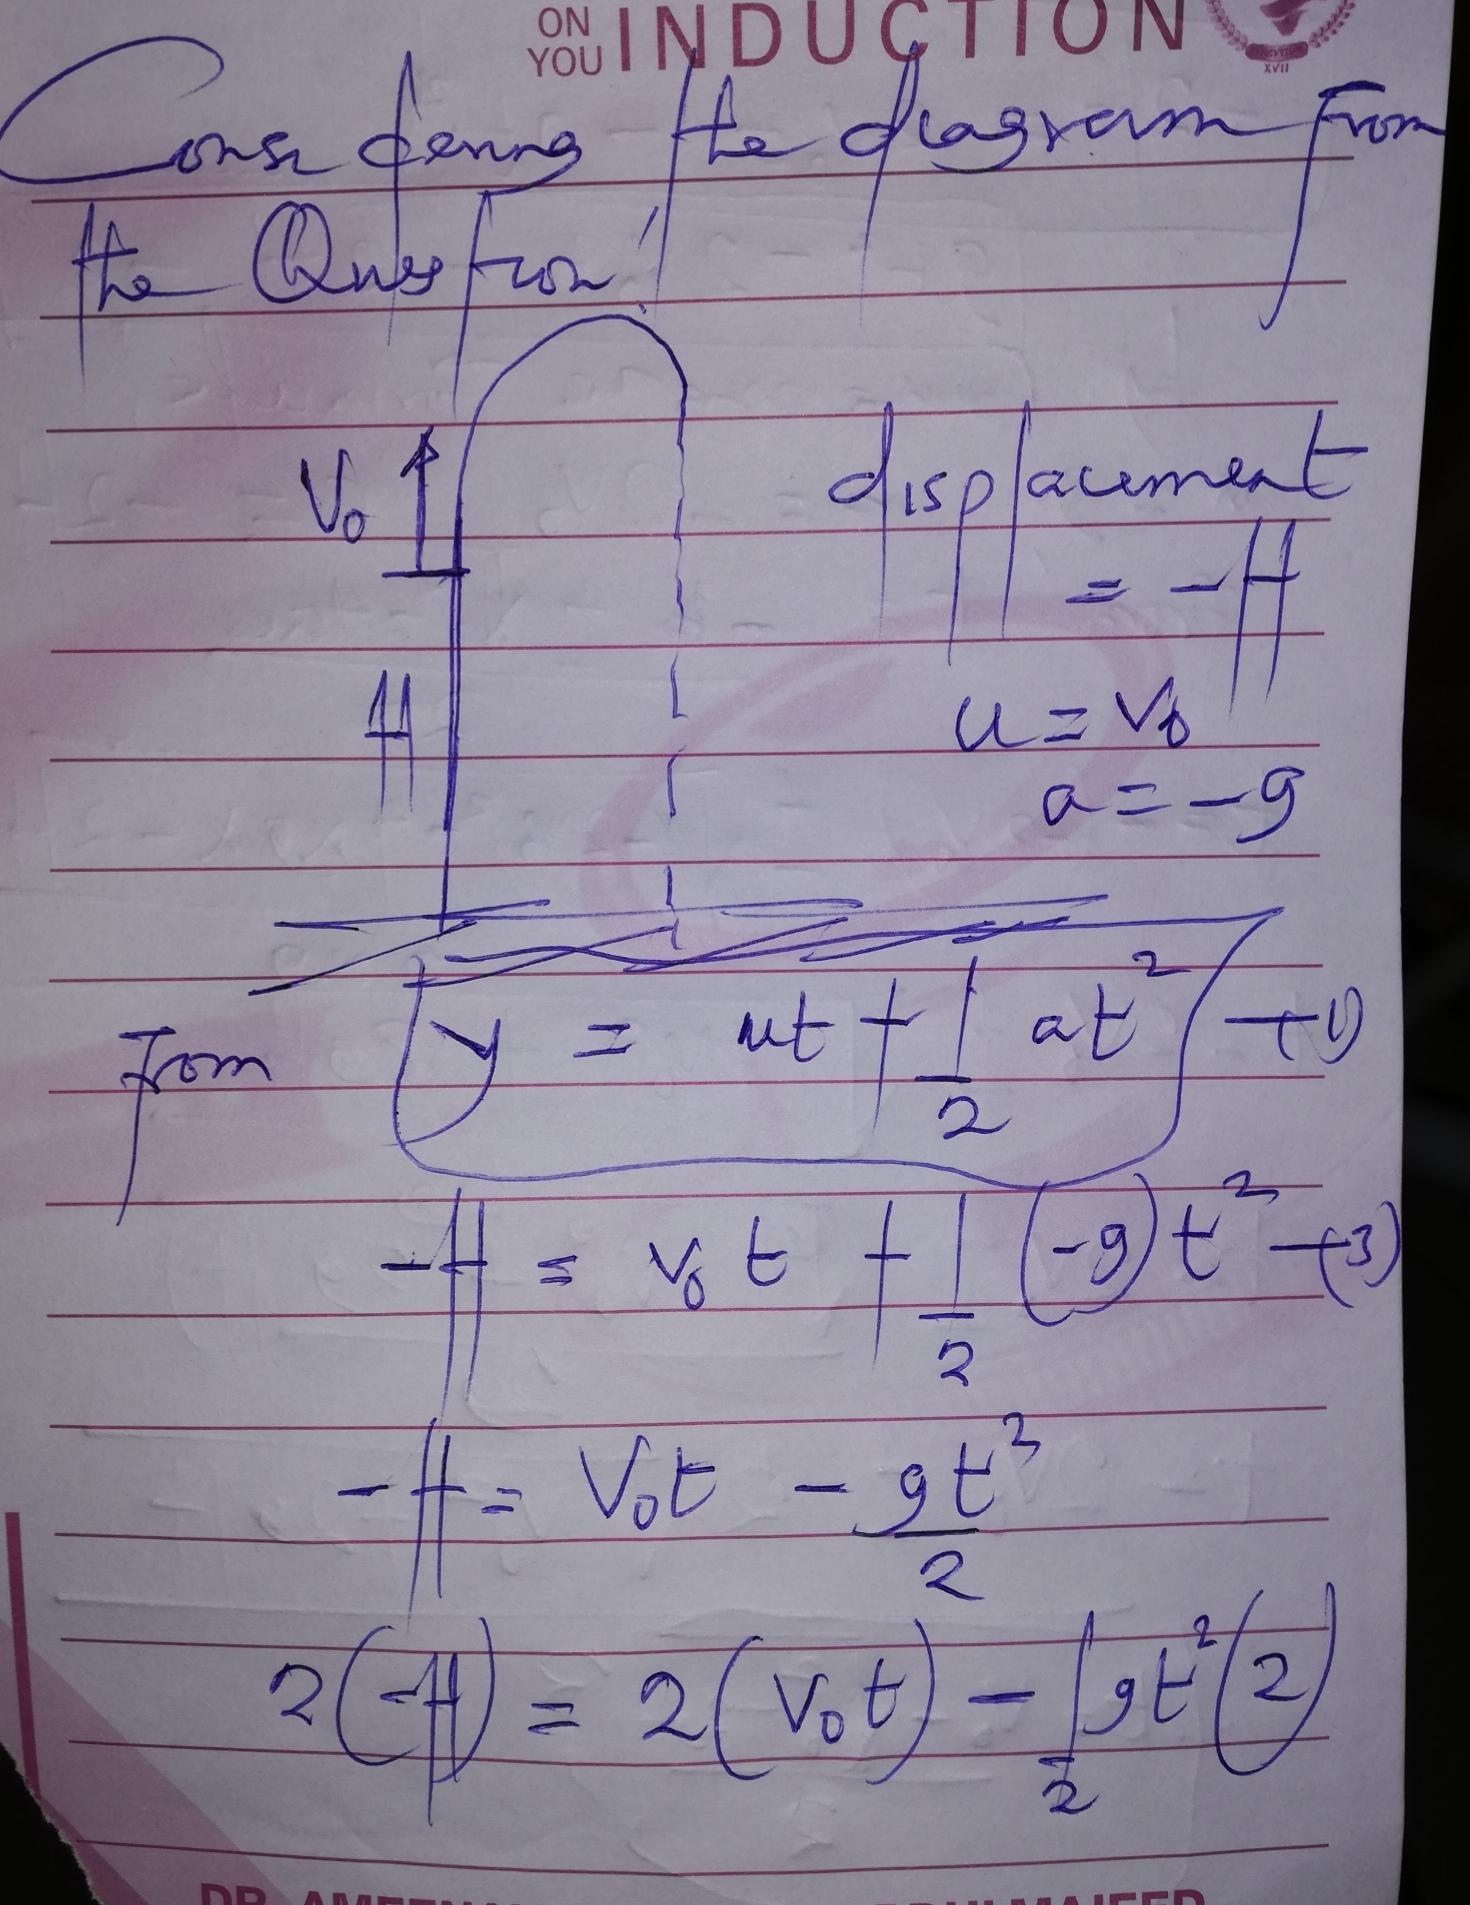 ON
YOU INDUCTION
XVII
Considering the diagram from
the Question
V₀
displacement
= -H
H
u = V₀
a = -g
From y = ut + 1/2 at² —(1)
-H = V₀t + 1/2 (-g)t² —(3)
-H = V₀t - gt²/2
2(-H) = 2(V₀t) - 1/2 gt²(2)